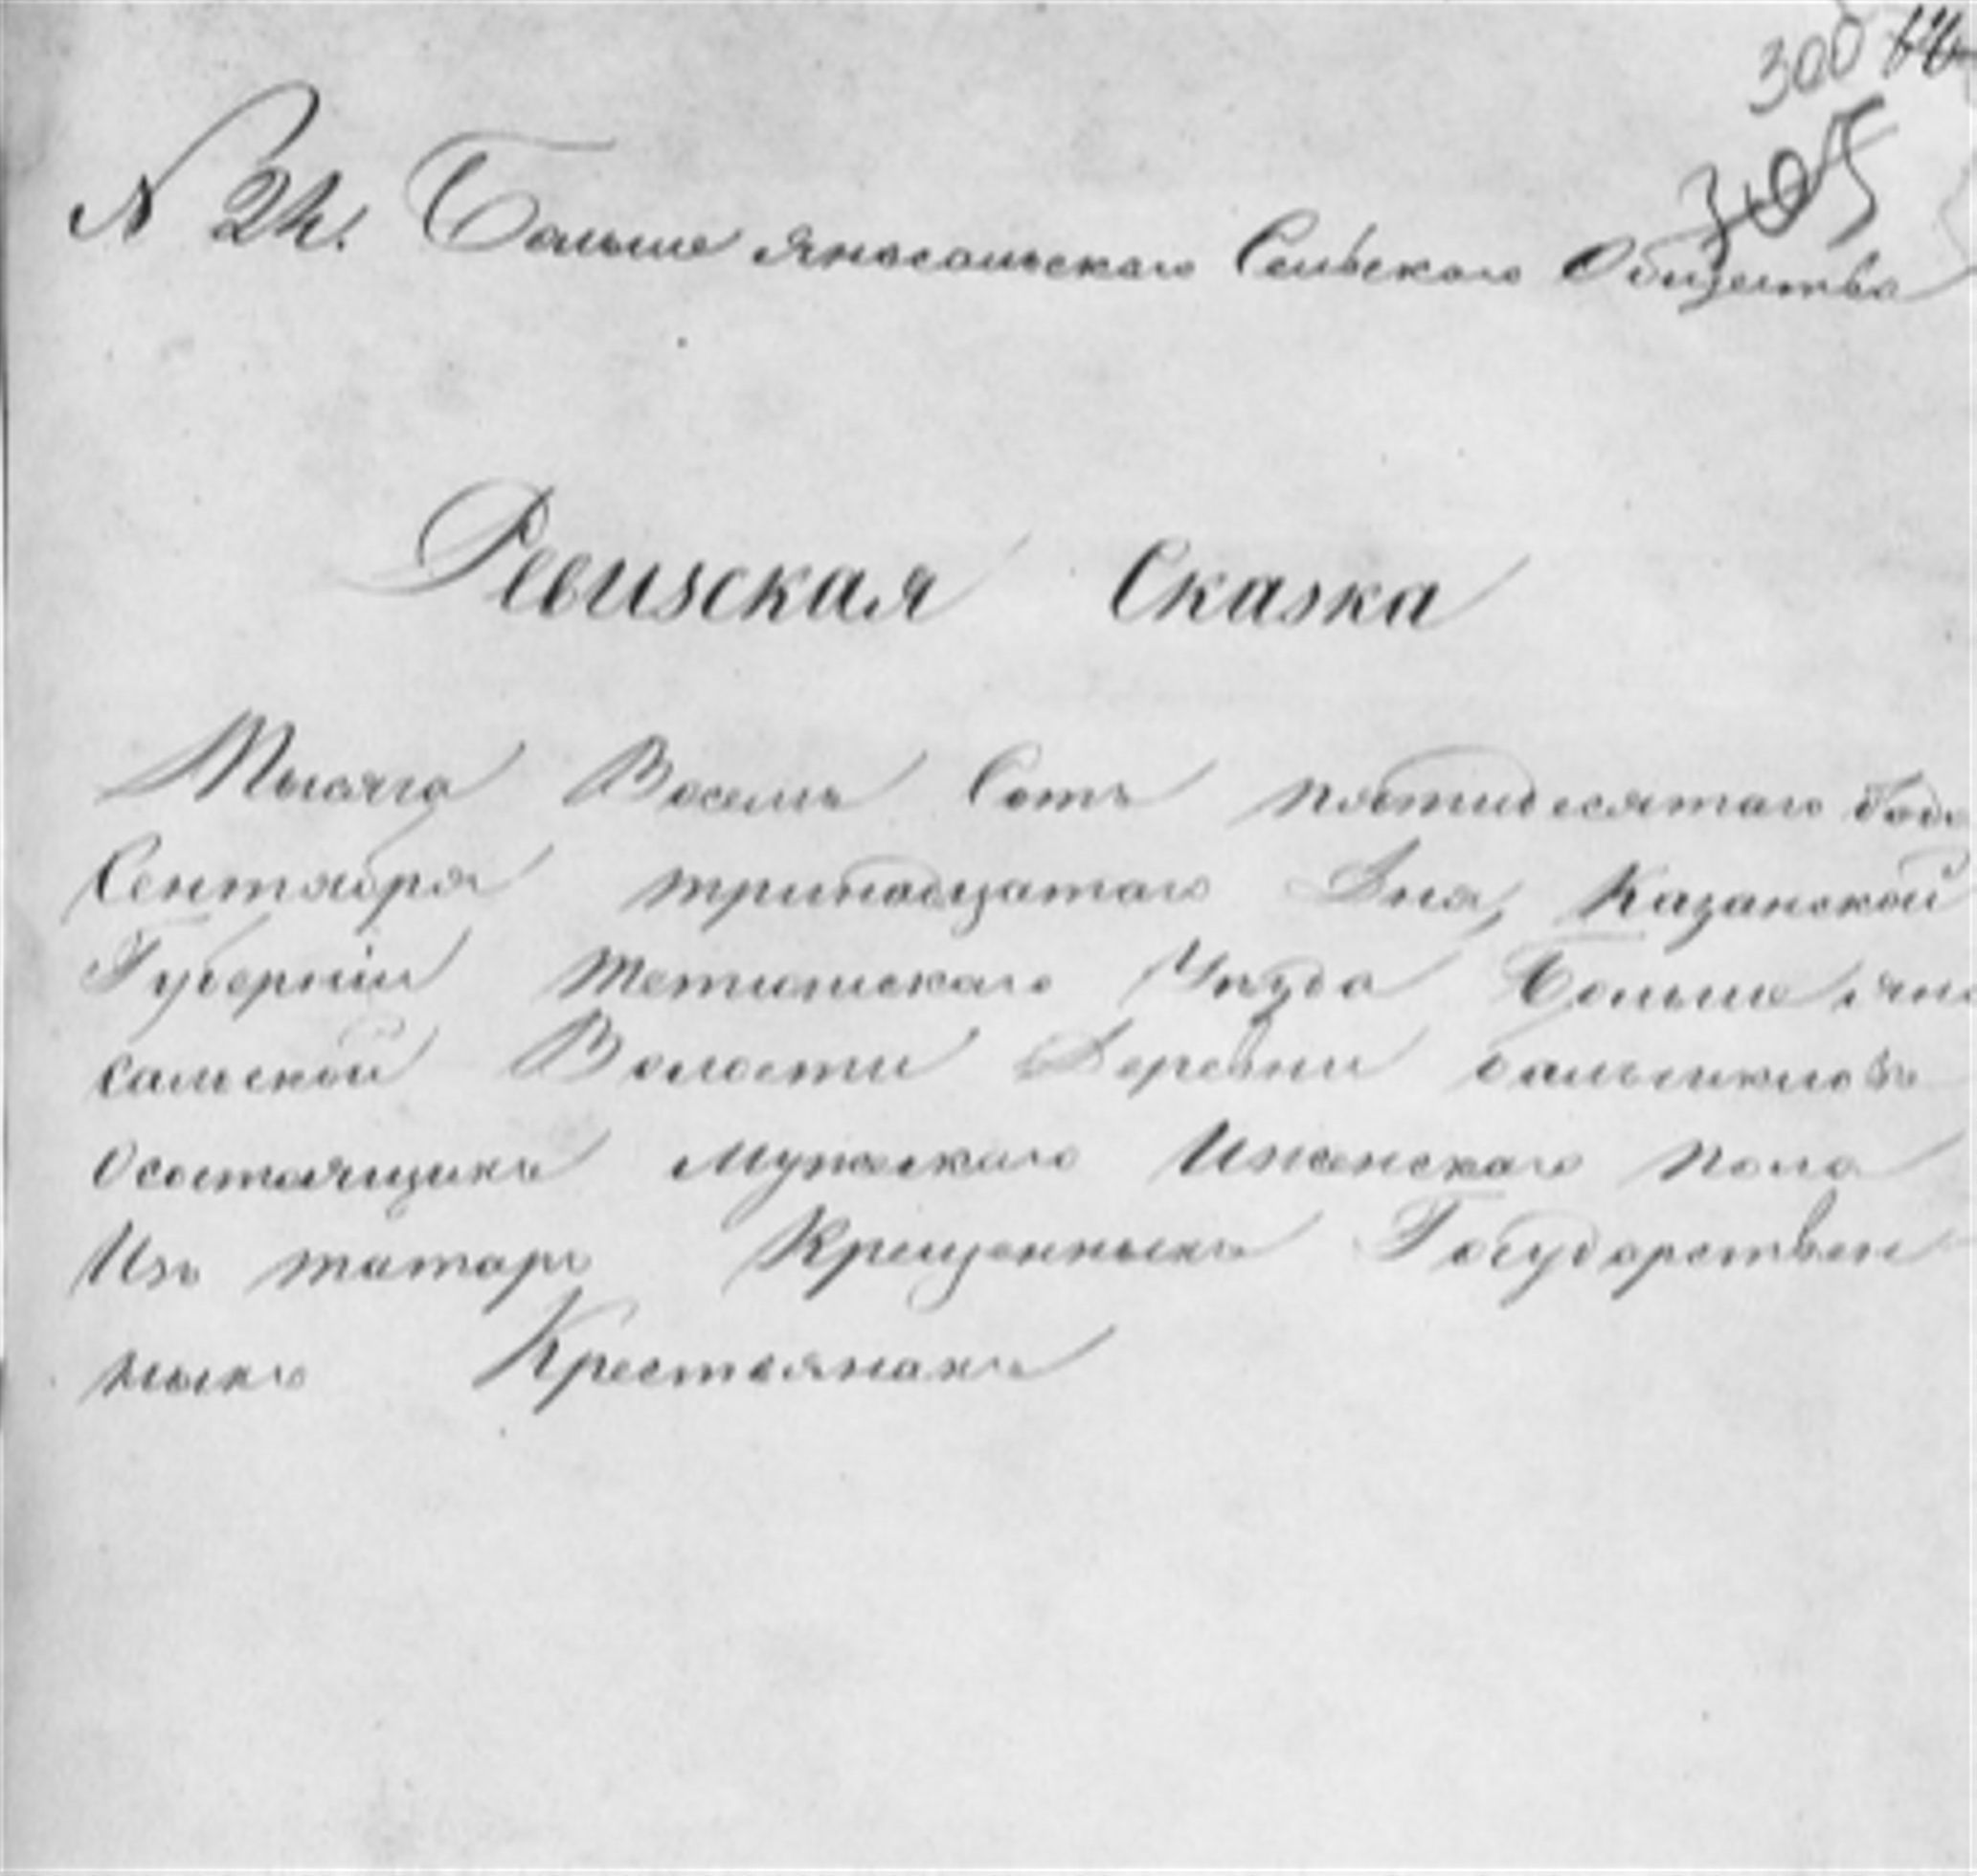 300
305
N 24. Больше яносальскаго Сельскаго Общества
Ревизская Сказка
Тысяча Восемь Сотъ пятидесятаго Года
Сентября тринадцатаго Дня, Казанской
Губерніи Тетюшскаго Уѣзда Больше яно
сальской Волости Деревни
Осостоящихъ мужескаго Иженскаго пола
Изъ татаръ Крещенныхъ Государствен
ныхъ Крестьянахъ